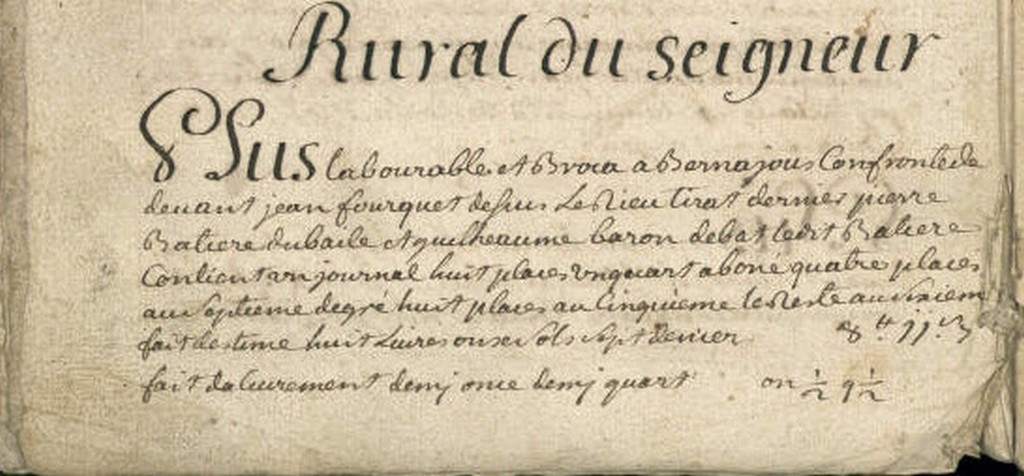 Rural du seigneur
Plus labourable et Broca a Bernajous Confronte de
devant jean fourquet dessus Le Rieu tirat dernier pierre
Batiere dubaile et guilheaume baron debat ledit Batiere
Contient un journal huit places un quart aboné quatre places
au septieme degré huit places au Cinquieme le Reste au sixiem
fait destime huit Livres onse sols sept denier 8 ll 11 s
fait daliurement demj once demj quart on 1/2 q 1/2